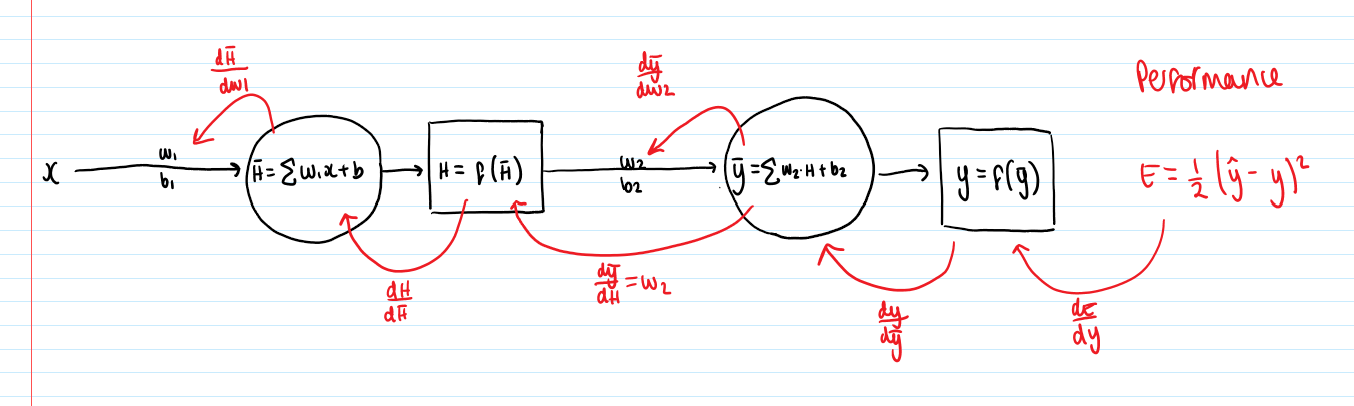 dH̄/dw1
dȳ/dw2
Performance
x
w₁
b₁
H̄ = Σw₁x + b
H = f(H̄)
w₂
b₂
ȳ = Σw₂·H + b₂
y = f(ȳ)
E = 1/2 (ŷ - y)²
dH/dH̄
dȳ/dH = w₂
dy/dȳ
dE/dy